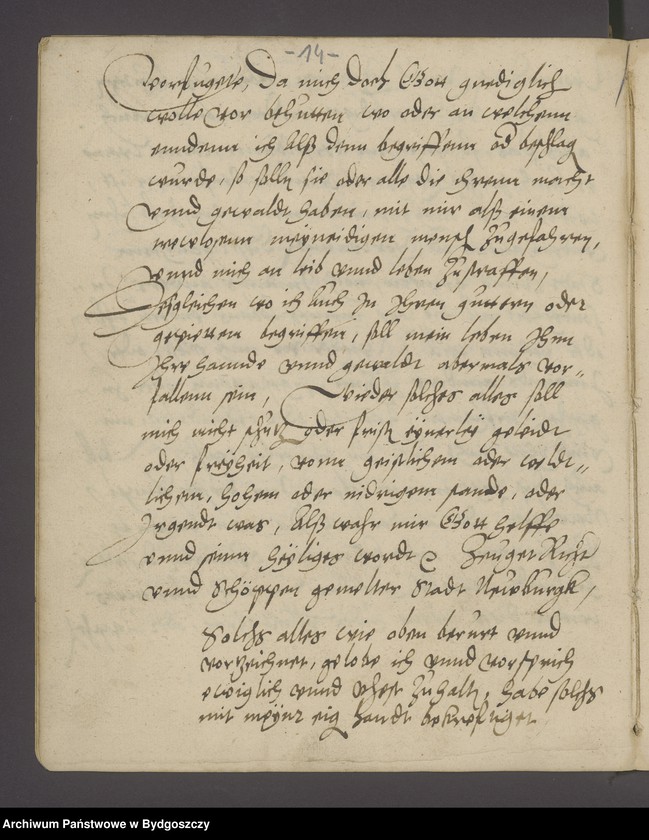 -14-
vorfugete, Da mich doch Gott gnediglich
wolle vor behutten wo oder an welchenn
enndenn ich alß denn begriffenn od beschlag
wurde, so solln sie oder alle die ihrenn macht
vnnd gewaldt haben, mit mir alß einem
meyneidigen mensch zugefahren,
vnnd mich an leib vnnd leben zustraffen,
Desgleichen wo ich auch in Ihren guttern oder
gepiettenn begriffen, soll mein leben Ihnn
Ihre hannde vnnd gewaldt abermals vor-
fallenn sein, Wieder solches alles soll
mich nicht schutz oder frist eynerley geleidt
oder freyheit, vonn geistlichem oder weldt-
lichem, hohem oder nidrigem stande, oder
Irgendt was, Alß wahr mir Gott helffe
vnnd seinn heyliges wordt Zeuget Richt
vnnd Schöppen gemelter Stadt Newburgk,
Solchs alles wie oben berurt vnnd
vorzeichnet, gelobe ich vnnd vorsprich
ewiglich vnnd vhest zuhaltn, habe solchs
mit meyner eig handt bekreftiget
Archiwum Państwowe w Bydgoszczy